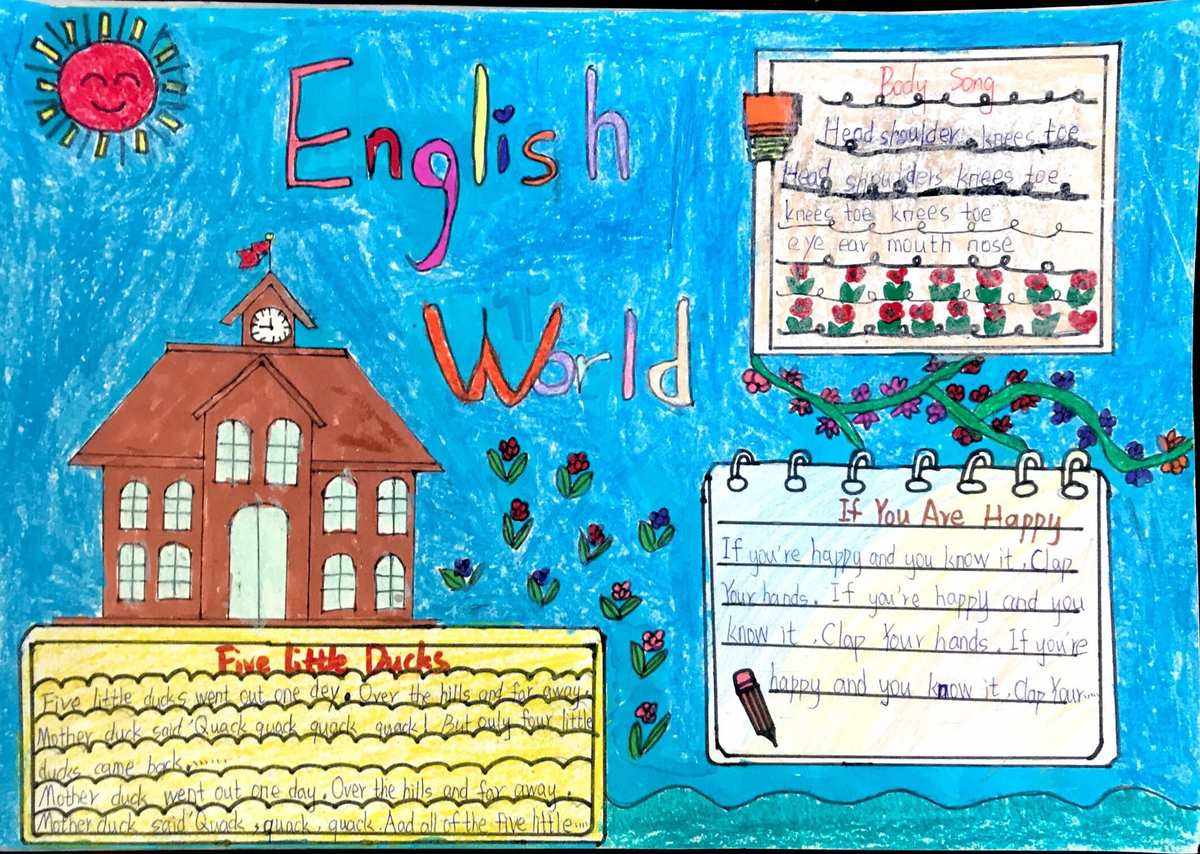 English
World
Body Song
Head shoulder knees toe
Head shoulders knees toe
knees toe knees toe
eye ear mouth nose
If You Are Happy
If you're happy and you know it . Clap
Your hands. If you're happy and you
know it . Clap Your hands. If you're
happy and you know it . Clap Your......
Five little Ducks
Five little ducks went out one dey. Over the hills and far away.
Mother duck said "Quack quack quack quack! But only four little
ducks came back.......
Mother duck went out one day. Over the hills and far away.
Mother duck said "Quack , quack, quack. And all of the five little....